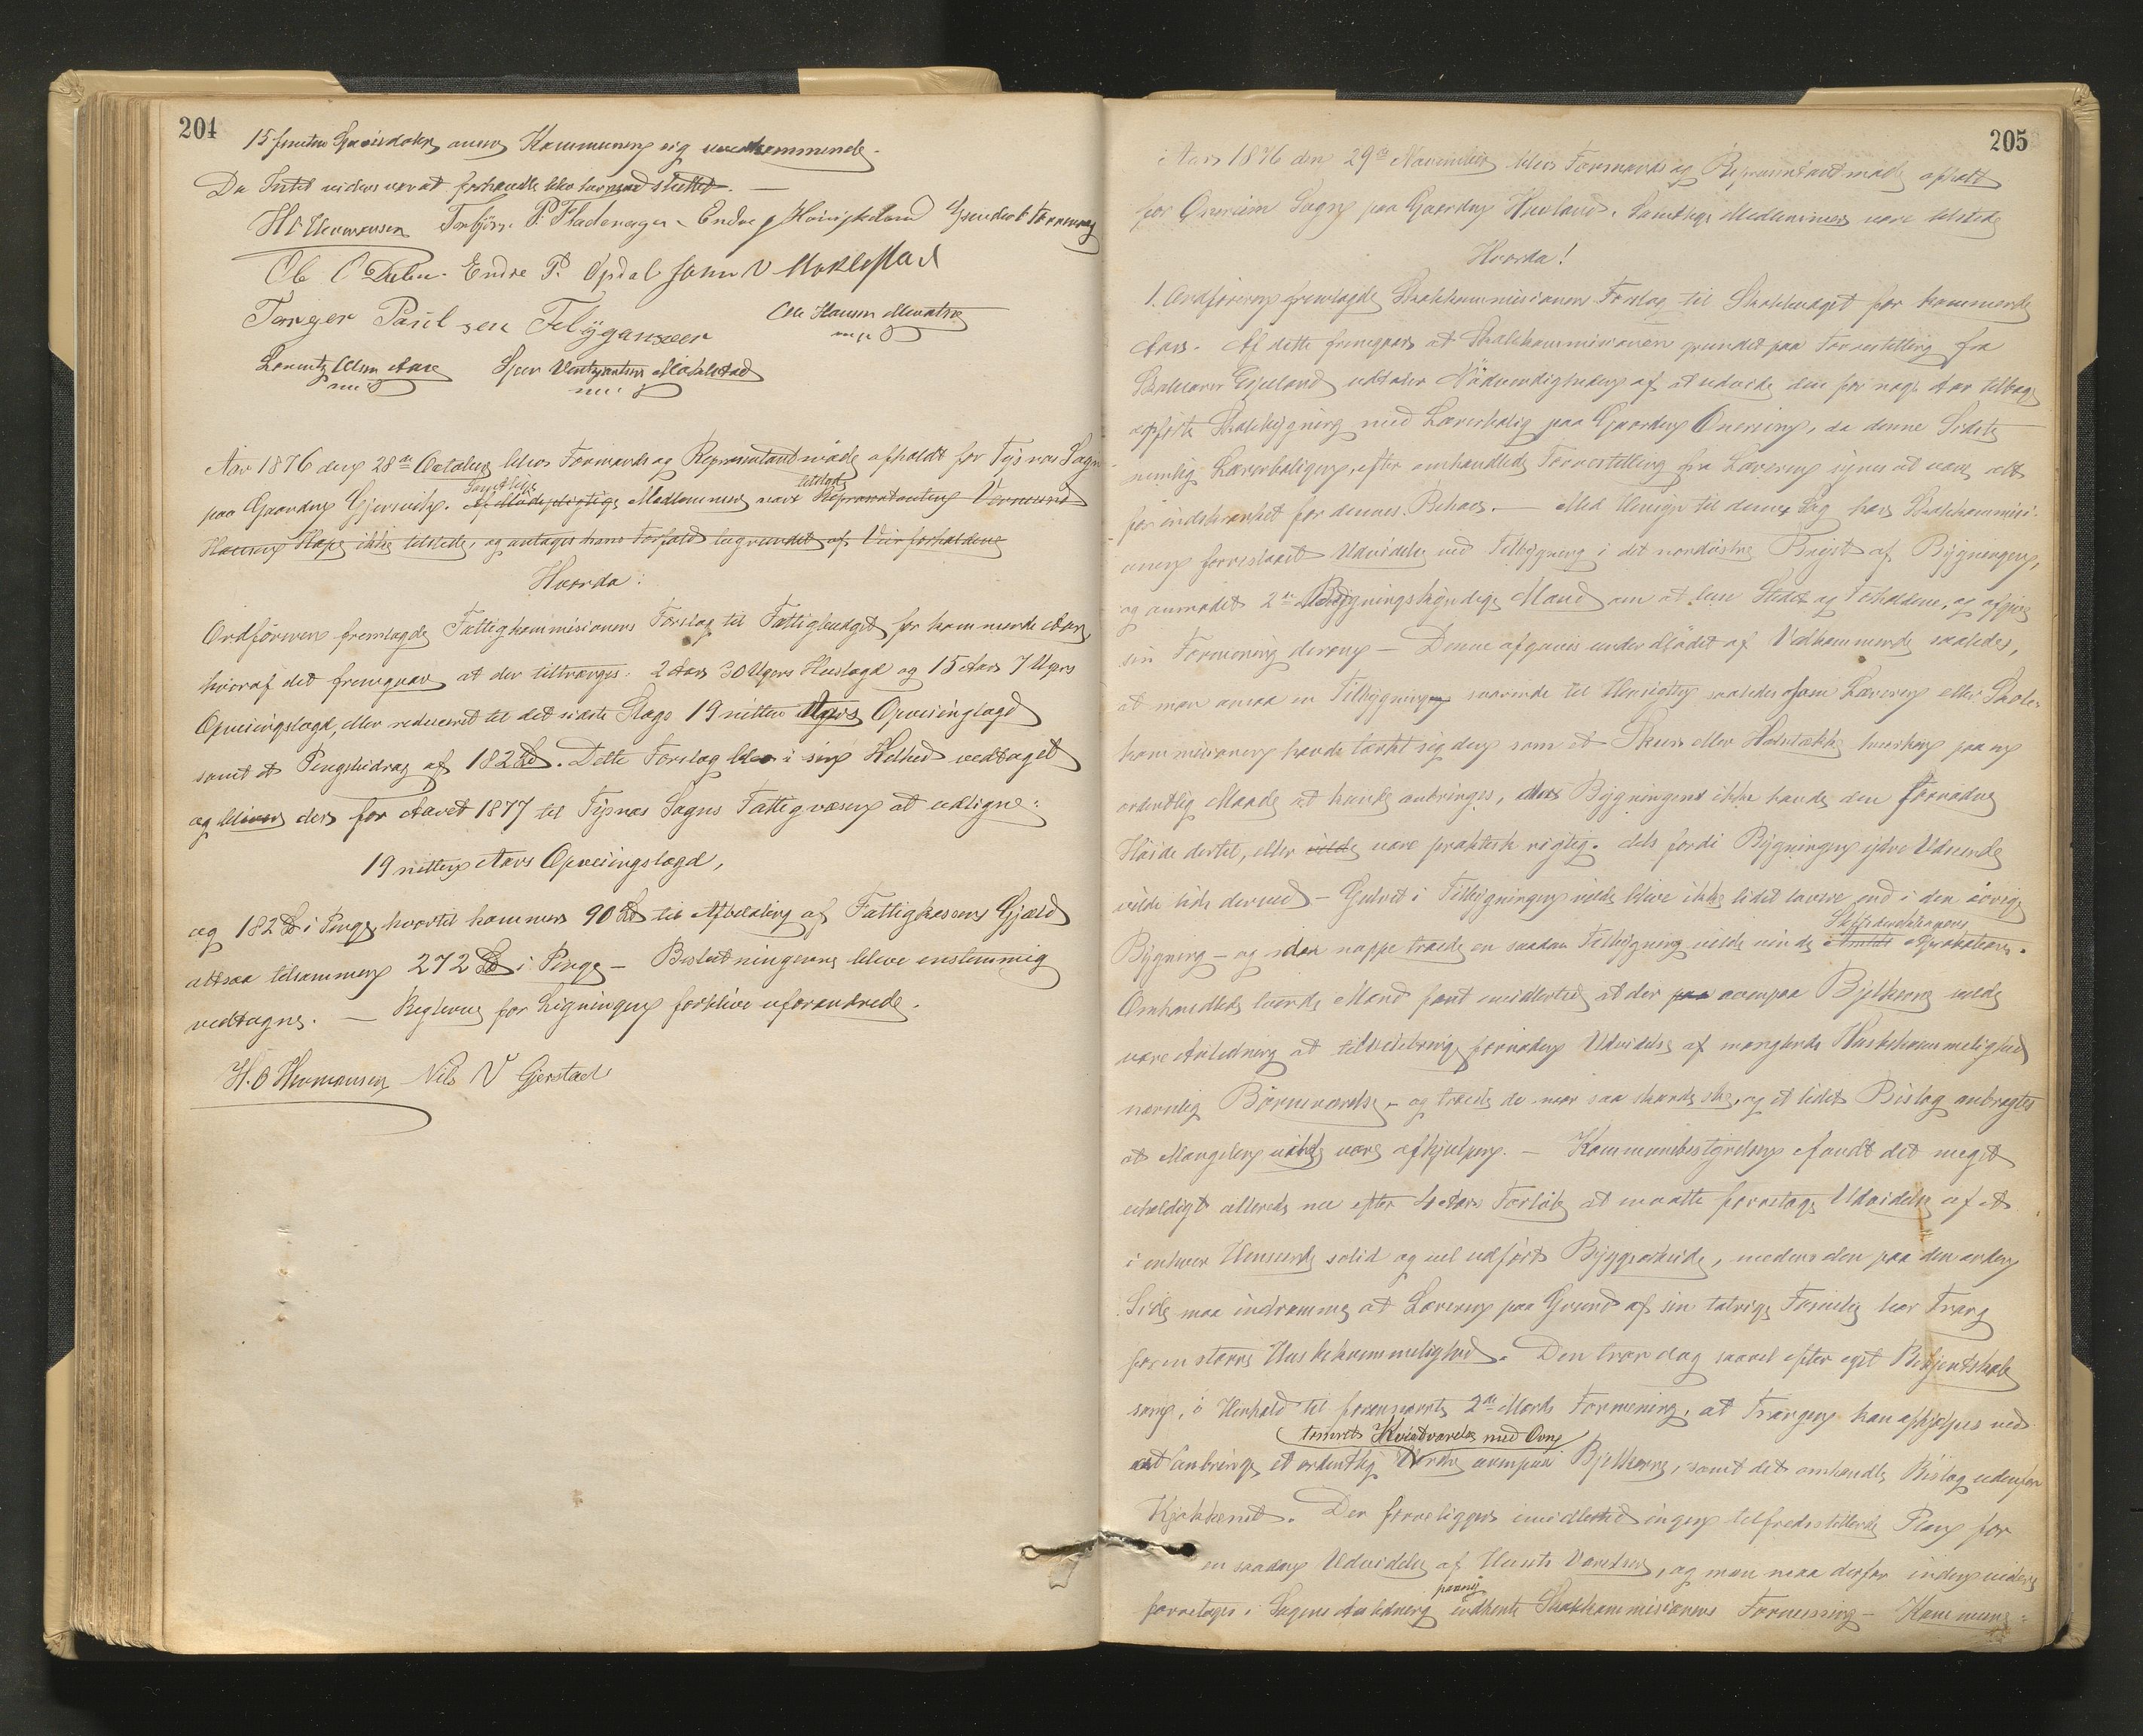 204
15 femten Speciedaler, anser Kommunen sig uvedkommende.
Da Intet videre var at forhandle blev Forhand sluttet. —
H O Hermansen Torbjørn P. Fladerager Endre Høivigkeland
Ole O Dalen. Endre P. Opdal John V Møklestad
Torger Paulsen Flÿganvær Ole Hansen
m. p. O
Lauritz Olsen Aare Sjur Møklestad
m. p. O m. p. O
Aar 1876 den 28de October blev Formands og Repræsentantmøde afholdt for Tysnæs Sogn
Samtlige tilstede
paa Gaarden Gjersvik. Af Mødepligtige Medlemmer vare Repræsentanten Vermund
Hansen Hope ikke tilstede, og antages hans Forfald begrundet af Veirforholdene
Hvorda:
Ordføreren fremlagde Fattigkommisionens Forslag til Fattigbudget for kommende Aar,
hvoraf det fremgaar at der tiltrænges: 2 Aars 30 Ugers Huslægd og 15 Aars 7 Ugers
Opveiingslægd, eller reduceret til det sidste Slags 19 nitten Ugers Opveiinglægd
samt et Pengebidrag af 182 Spd. Dette Forslag blev i sin Helhed vedtaget
og bliver der for Aaret 1877 til Tysnæs Sogns Fattigvæsen at udligne:
19 nitten Aars Opveiingslægd,
og 182 Spd i Penge, hvortil kommer 90 Spd til Afbetaling af Fattigkassens Gjæld
altsaa tilsammen 272 Spd i Penge — Beslutningerne bleve enstemmig
vedtagne. — Reglerne for Ligningen forblive uforandrede.
H. O Hermansen Nils N Gjerstad
205
Aar 1876 den 29de November blev Formands og Repræsentantmøde afholdt
for Onareim Sogn paa Gaarden Huvland. Samtlige Medlemmer vare tilstede
Hvorda!
1. Ordføreren fremlagde Skolekommisionens Forslag til Skolebudget for kommende
Aar. Af dette fremgaar at Skolekommisionen grundet paa Forestilling fra
Skolelærer Gjelland udtaler Nødvendigheden af at udvide den for nogle Aar tilbage
opførte Skolebygning med Lærerbolig paa Gaarden Onareim, da denne Sidste
nemlig Lærerboligen, efter omhandlede Forestilling fra Læreren synes at være alt
for indskrænket for dennes Behov. — Med Hensyn til denne Sag har Skolekommisi-
onen foreslaaet Udvidelse ved Tilbygning i det nordøstre af Bygningen,
og anmodet 2de Bygningskyndige Mænd om at bese Stedet og Forholdene, og afgive
sin Formening derom — Denne afgaves under Mødet af Vedkommende saaledes,
at man ansaa en Tilbygning svarende til Hensigten saaledes som Læreren eller Skole-
kommisionen havde tænkt sig den som et Skur eller Halvtække hverken paa en
ordentlig Maade at kunde anbringes, da Bygningen ikke havde den fornødne
Høide dertil, eller vilde være praktisk rigtig. dels fordi Bygningens ydre Udseende
vilde lide derved — Gulvet i Tilbygningen vilde blive ikke lidet lavere end i den øvrige
Skifderækningens
Bygning — og neppe troede en saadan Tilbygning vilde vinde Approbation.
Omhandlede tvende Mænd fandt imidlertid at der paa ovenpaa Bjelkerne vilde
være Anledning at tilveiebringe fornøden Udvidelse af manglende Husbekvemmelighed
nemlig Børneværelse, og troede de naar saa skande ske, og et lidet Bislag anbragtes
at Mangelen vilde være afhjulpen. — Kommunebestyrelsen fandt det meget
uheldigt allerede nu efter 4 Aars Forløb at maatte foretage Udvidelse af et
i enhver Henseende solid og vel udført Byggearbeide, medens den paa den anden
Side maa indrømme at Læreren paa Grund af sin talrige Familie har Trang
for en større Husbekvemmelighed. Den tror dog saavel efter eget Bekjentskab
som, i Henhold til foranførte 2de Mænds Formening, at Trangen kan afhjælpes ved
tømret Kvistværelse med Ovn
at anbringe et ordentlig Værelse ovenpaa Bjelkerne, samt det omhandlede Bislag udenfor
Kjøkkenet. Der foreligger imidlertid ingen tilfredsstillende Plan for
en saadan Udvidelse af Husets Værelser, og man maa derfor inden videre
paany
foretages i Sagens Anledning indhente Skolekommisionens Formening — Kommune-